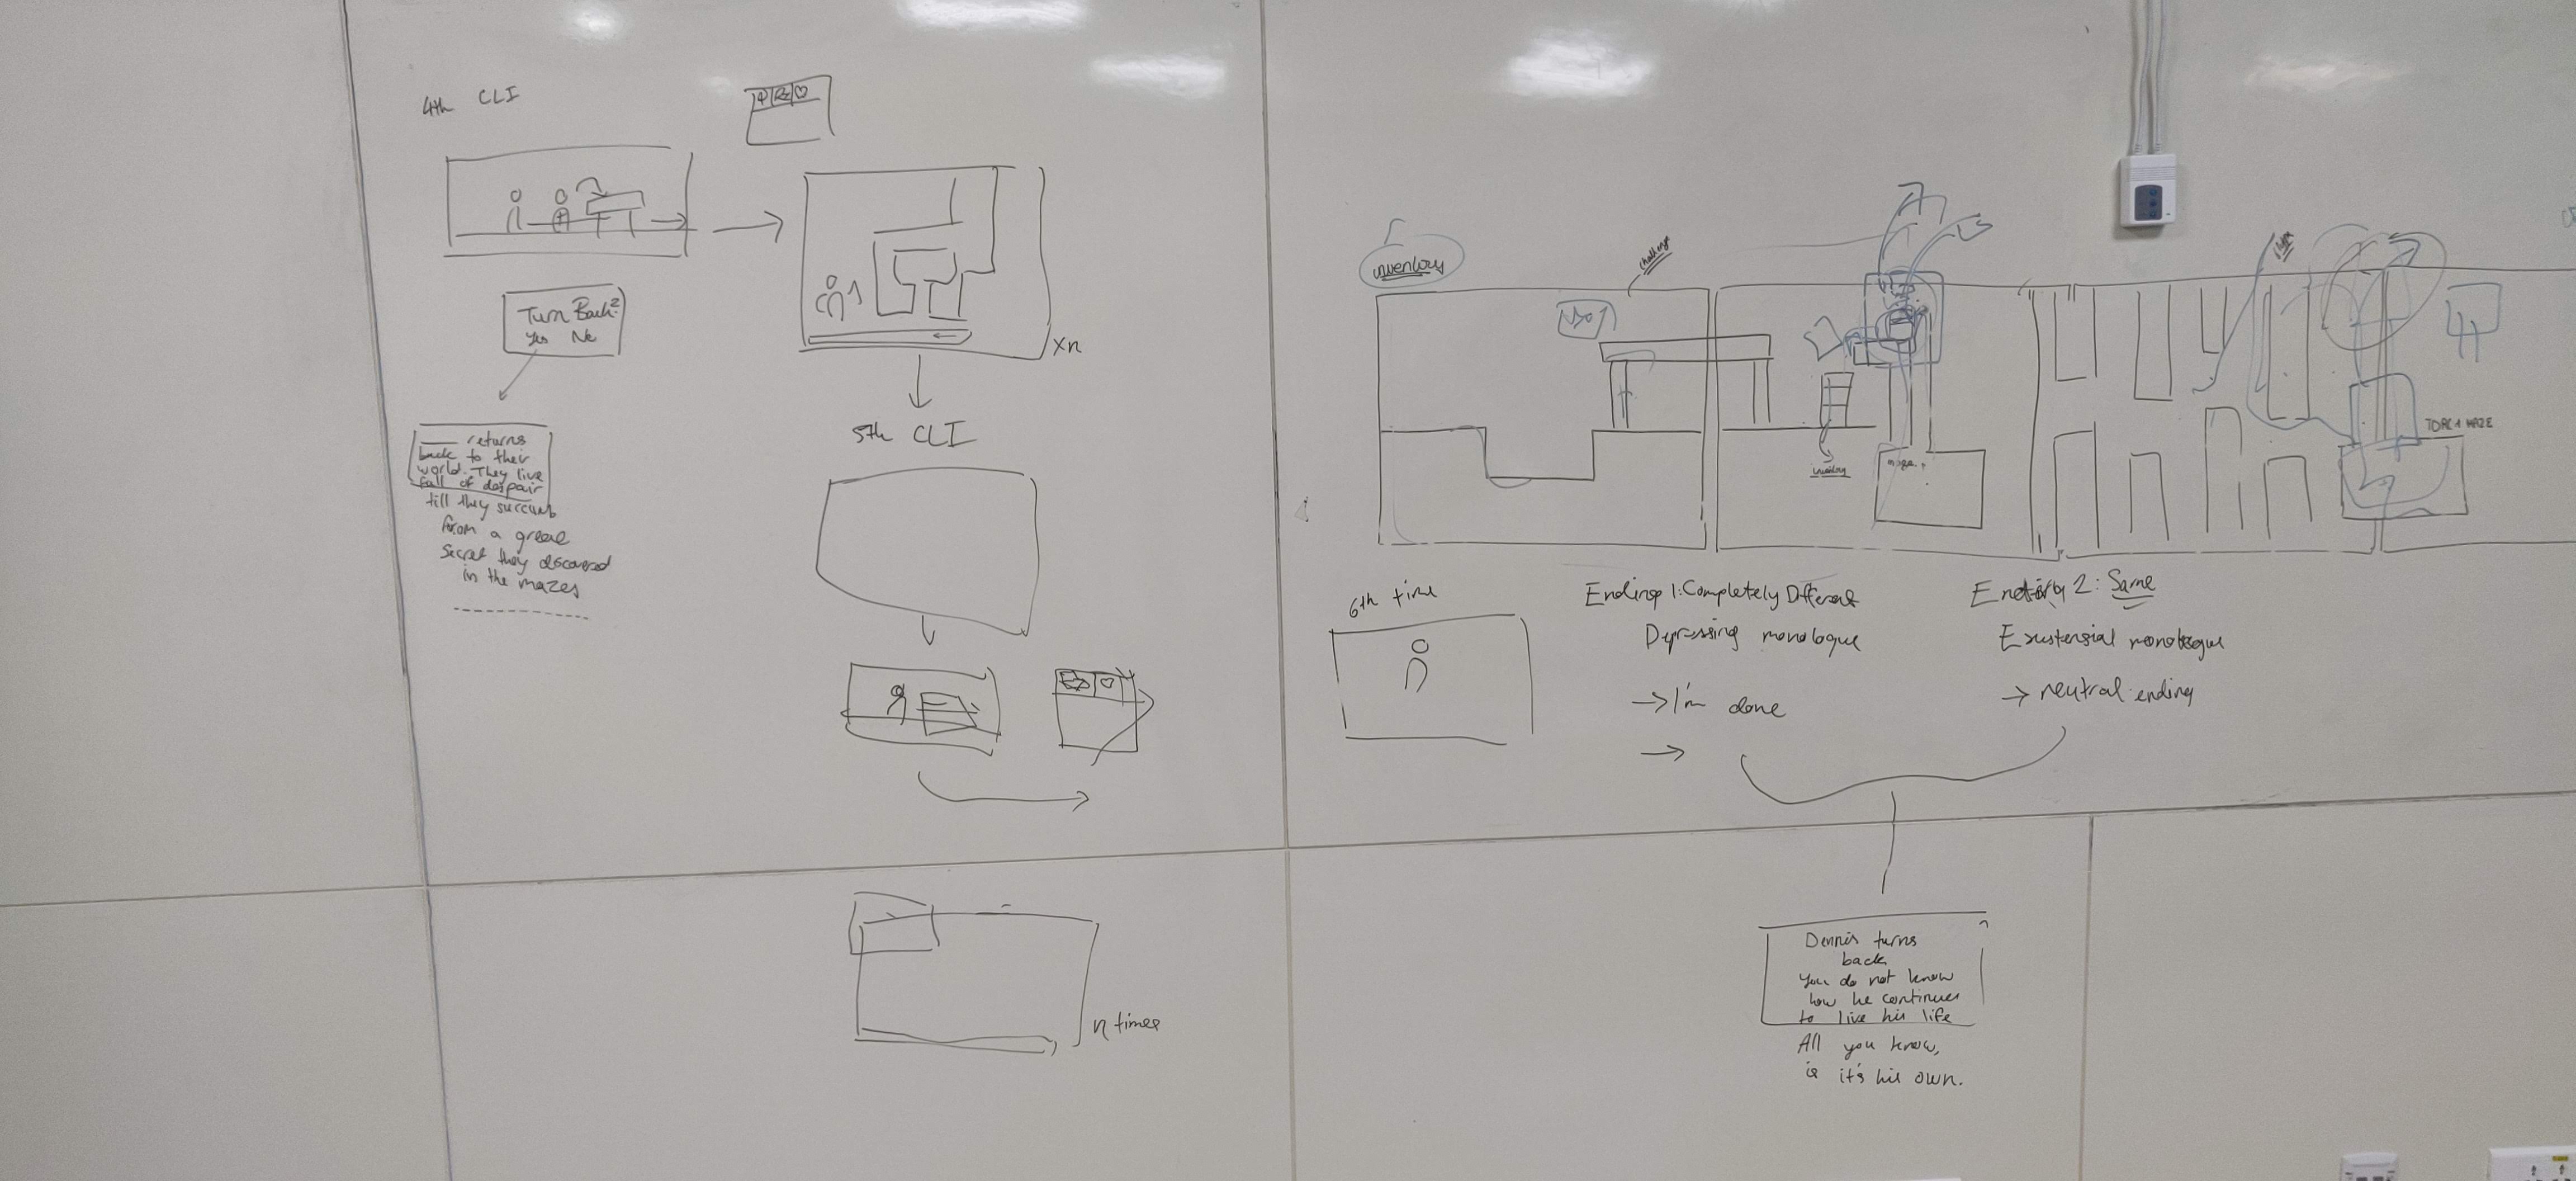 4th CLI
Turn Back?
Yes No
returns
back to their
world. They live
full of despair
till they succumb
from a great
secret they discovered
in the mazes
xn
5th CLI
n times
inventory
challenge
inventory
maze
light
TORCH MAZE
6th time
Ending 1: Completely Different
Depressing monologue
→ I'm done
→
Ending 2: Same
Existensial monologue
→ neutral ending
Dennis turns
back
You do not know
how he continues
to live his life
All you know,
is it's his own.